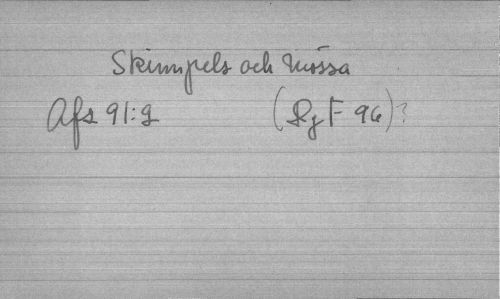 Skinnpels och mössa
Afs 91:2 (Sg F 96)?